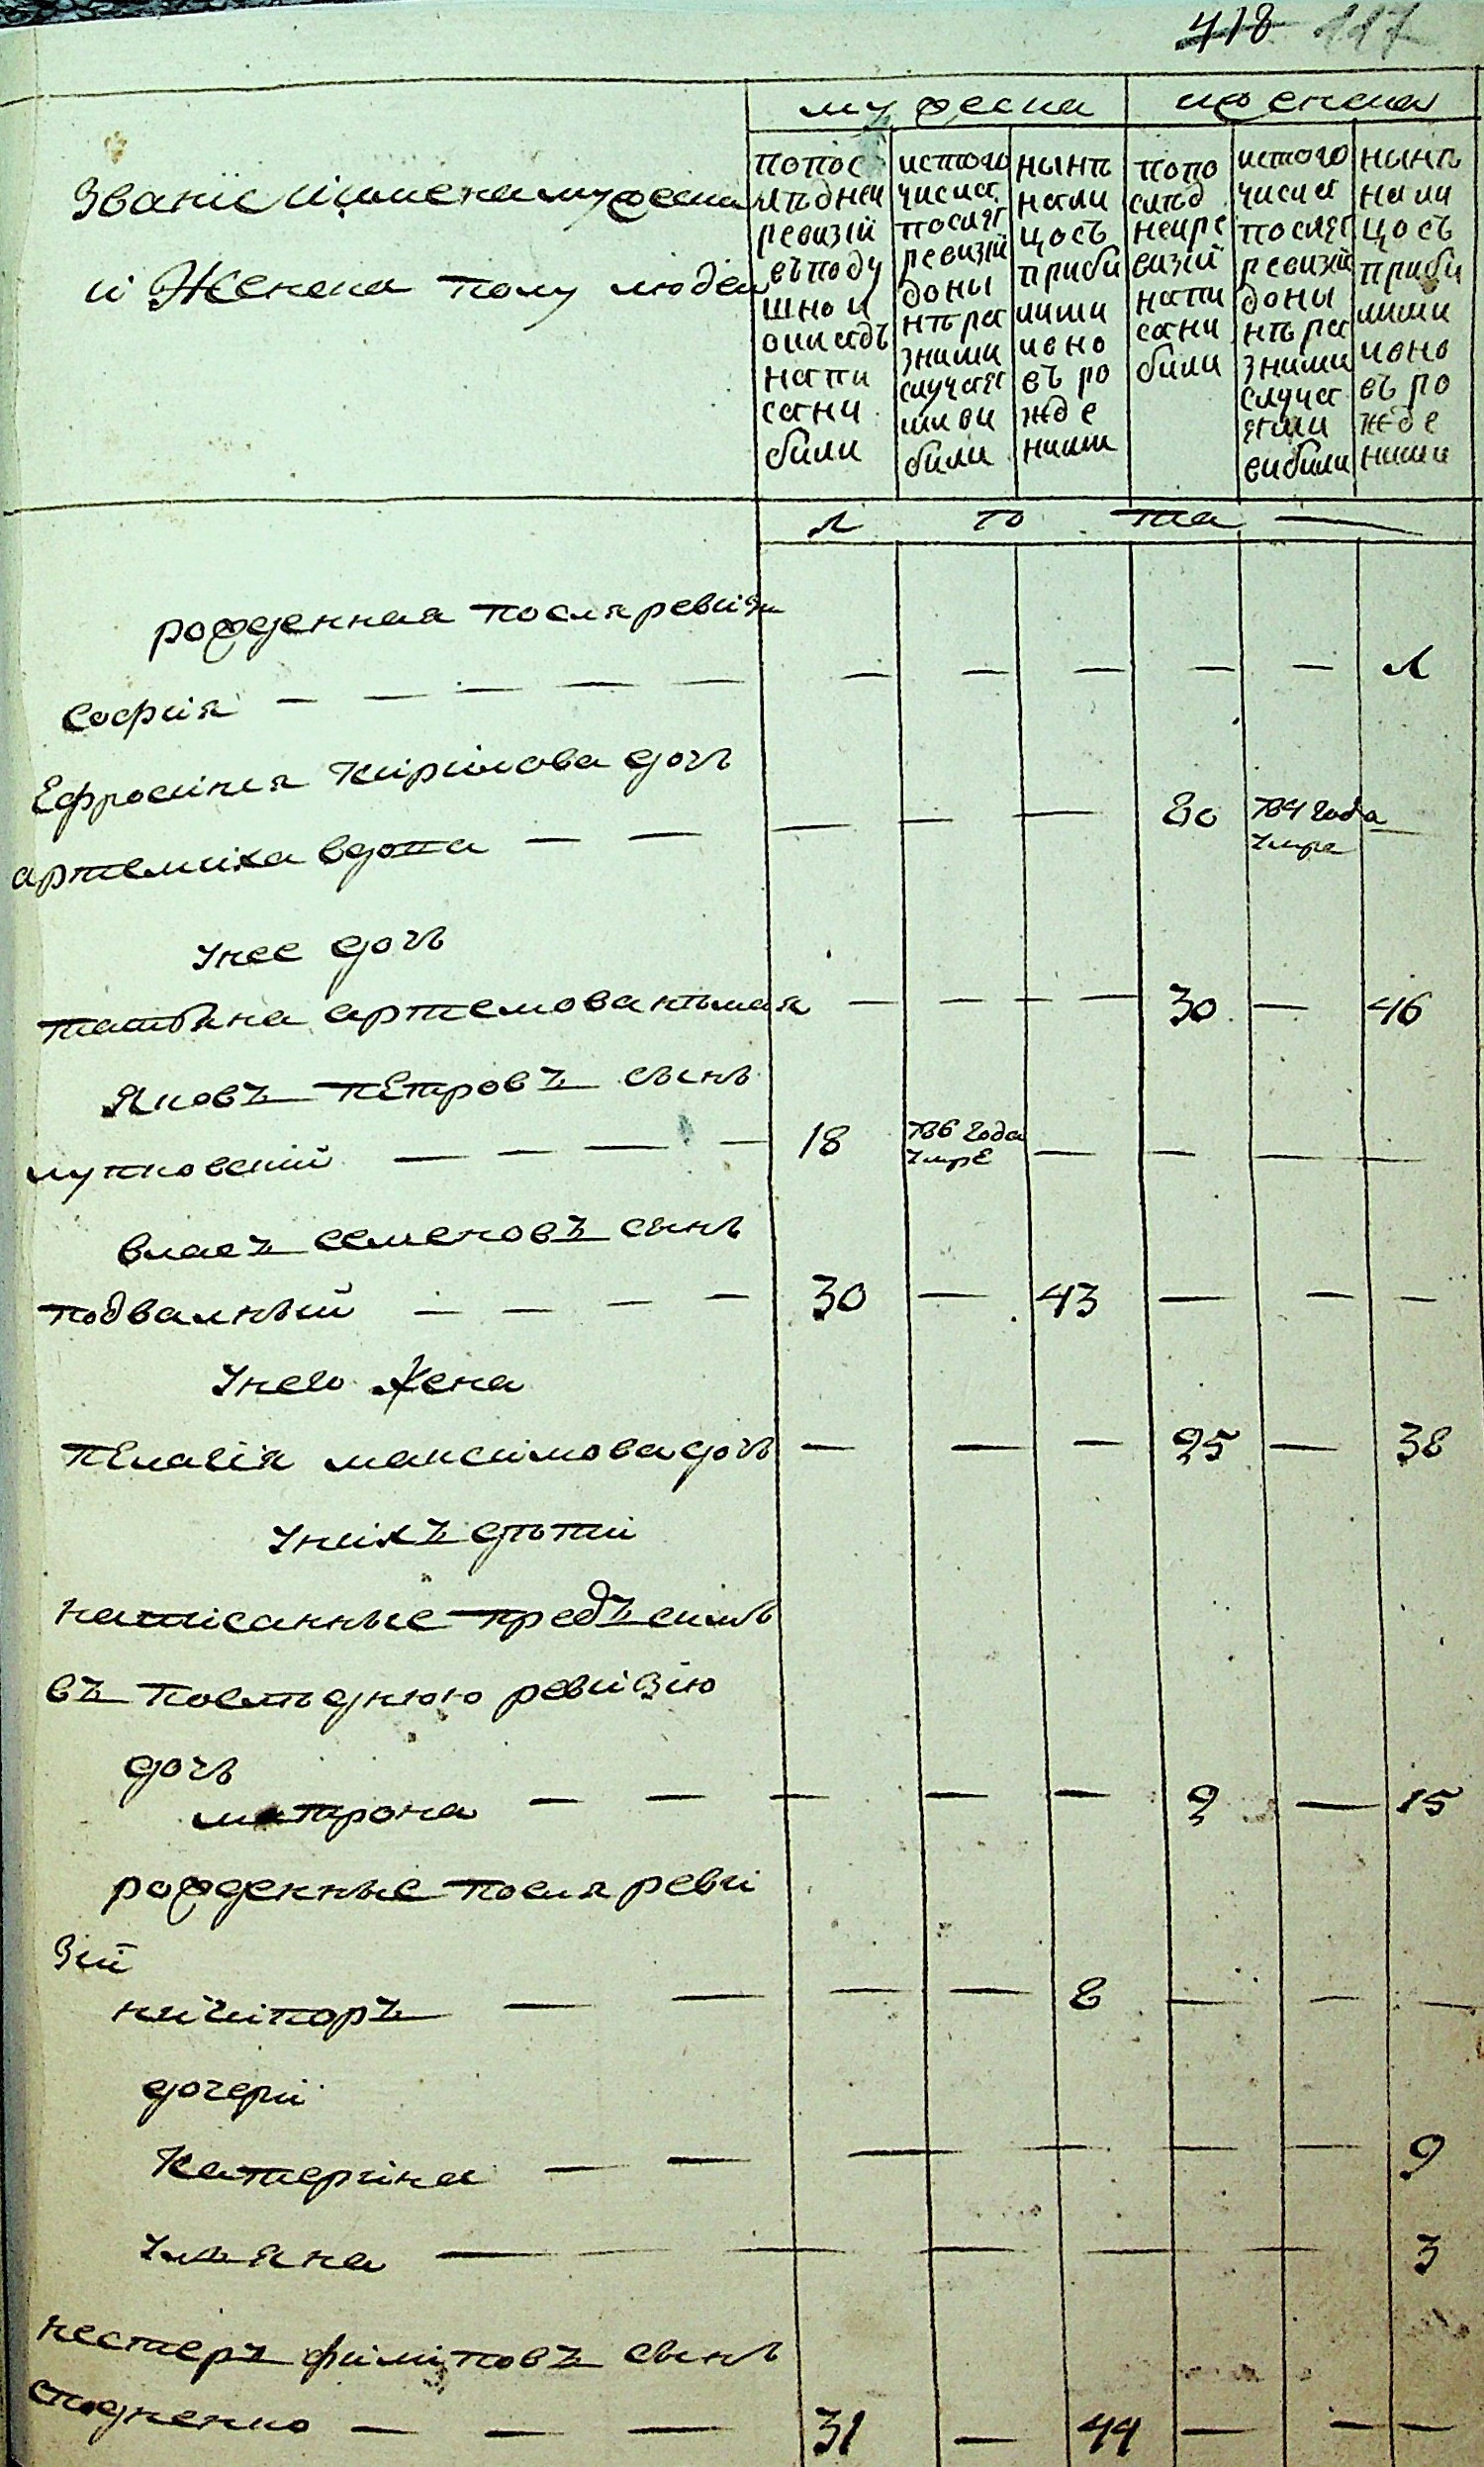 418 117
мужеска
женска
Званіе иімена мужеска
и Женска полу людей
попос
лѣдней
ревизій
въподу
шно и
окладъ
напи
сани
били
истого
числа
послѣ
ревизій
доны
нѣ ра
зними
случая
ми ви
били
нынѣ
нали
цось
приби
лими
ионо
въ ро
жде
ними
попо
слѣд
нейре
визій
напи
сани
били
истого
числа
послѣ
ревизій
доны
нѣ ра
зними
случа
ями
вибили
нынѣ
нали
цось
приби
лими
ионо
въ ро
жде
ними
л ѣ та —
рожденная посляревизи
софия — — — — — — — — — — 1
Ефросиния Кирилова дочь
артемиха вдова — — — — — 80 784 года —
умре
унее дочь
татьяна артемова нѣмая — — — — 30 — 46
Яковъ пЕтровъ сынъ
лупковский — — — — 18 786 года — — — —
умрЕ
власъ семеновъ сынъ
подвалный — — — — 30 — 43 — — —
унего Жена
пЕлагія максимова дочь — — — 25 — 38
унихъ дѣти
написанные предъ симъ
въ последнюю ревизію
дочь
матрона — — — — — 2 — 15
рожденные посля реви
зий
ничипоръ — — — — 8 — — —
дочери
Катерина — — — — — — 9
Ульяна — — — — — — 3
нестеръ филиповъ сынъ
спедненко — — — 31 — 44 — — —